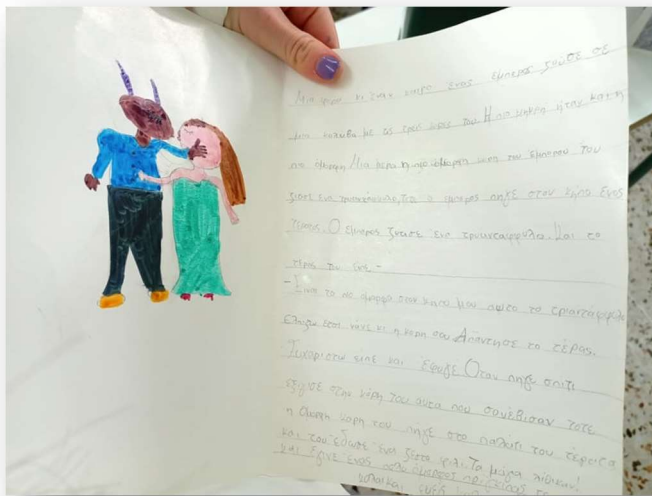 Μια φορα κι έναν καιρο ένας έμπορος ζούσε σε
μια καλύβα με τις τρείς κόρες του. Η πιο μικρη ήταν και η
πιο όμορφη. Μια μερα η πιο όμορφη κορη του έμπορου του
ζητισε ένα τριαντάφυλλο. Ετσι ο έμπορος πηγε στον κήπο ενος
τέρας. Ο έμπορος ζητισε ενα τριανταφυλλο. Και το
τέρας του είπε -
- Είναι το πιο όμορφο στον κηπο μου αυτο το τριανταφυλλο
ελπίζω ετσι να'χε κι η κορη σου Απάντησε το τέρας.
- Ευχαριστω ειπε και έφυγε Οταν πηγε σπιτι
εξιγισε στην κόρη του αυτα που συνέβισαν τοτε
η όμορφη κορη του πηγε στο παλάτι του τερατα
και του έδωσε ένα ζεστο φιλι. Τα μάγια λύθικαν!
και έγινε ένας πολύ όμορφος πρίγκιπας
καλα και εμείς